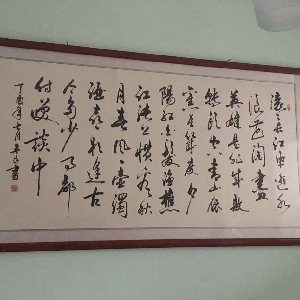 滚々长江东逝水
浪花淘尽
英雄是非成败
转头空青山依
旧在几度夕
阳红白发渔樵
江渚上惯看秋
月春风一壶浊
酒喜相逢古
今多少事都
付笑谈中
丁亥年七月 书